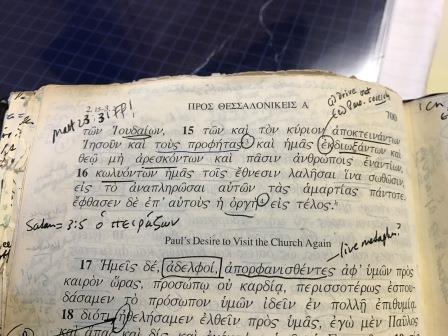 2.15-3.
matt 23:31ff!
ΠΡΟΣ ΘΕΣΣΑΛΟΝΙΚΕΙΣ Α
① drive out
700
τῶν Ἰουδαίων, 15 τῶν καὶ τὸν κύριον ἀποκτεινάντων
Ἰησοῦν καὶ τοὺς προφήτας καὶ ἡμᾶς ἐκδιωξάντων καὶ
θεῷ μὴ ἀρεσκόντων καὶ πᾶσιν ἀνθρώποις ἐναντίων,
16 κωλυόντων ἡμᾶς τοῖς ἔθνεσιν λαλῆσαι ἵνα σωθῶσιν,
εἰς τὸ ἀναπληρῶσαι αὐτῶν τὰς ἁμαρτίας πάντοτε.
ἔφθασεν δὲ ἐπ' αὐτοὺς ἡ ὀργὴ εἰς τέλος.
Satan = 3:5 ὁ πειράζων
Paul's Desire to Visit the Church Again
live metaphor?
17 Ἡμεῖς δέ, ἀδελφοί, ἀπορφανισθέντες ἀφ' ὑμῶν πρὸς
καιρὸν ὥρας, προσώπῳ οὐ καρδίᾳ, περισσοτέρως ἐσπου-
δάσαμεν τὸ πρόσωπον ὑμῶν ἰδεῖν ἐν πολλῇ ἐπιθυμίᾳ.
18 διότι ἠθελήσαμεν ἐλθεῖν πρὸς ὑμᾶς, ἐγὼ μὲν Παῦλος
καὶ ἅπαξ καὶ δίς, καὶ